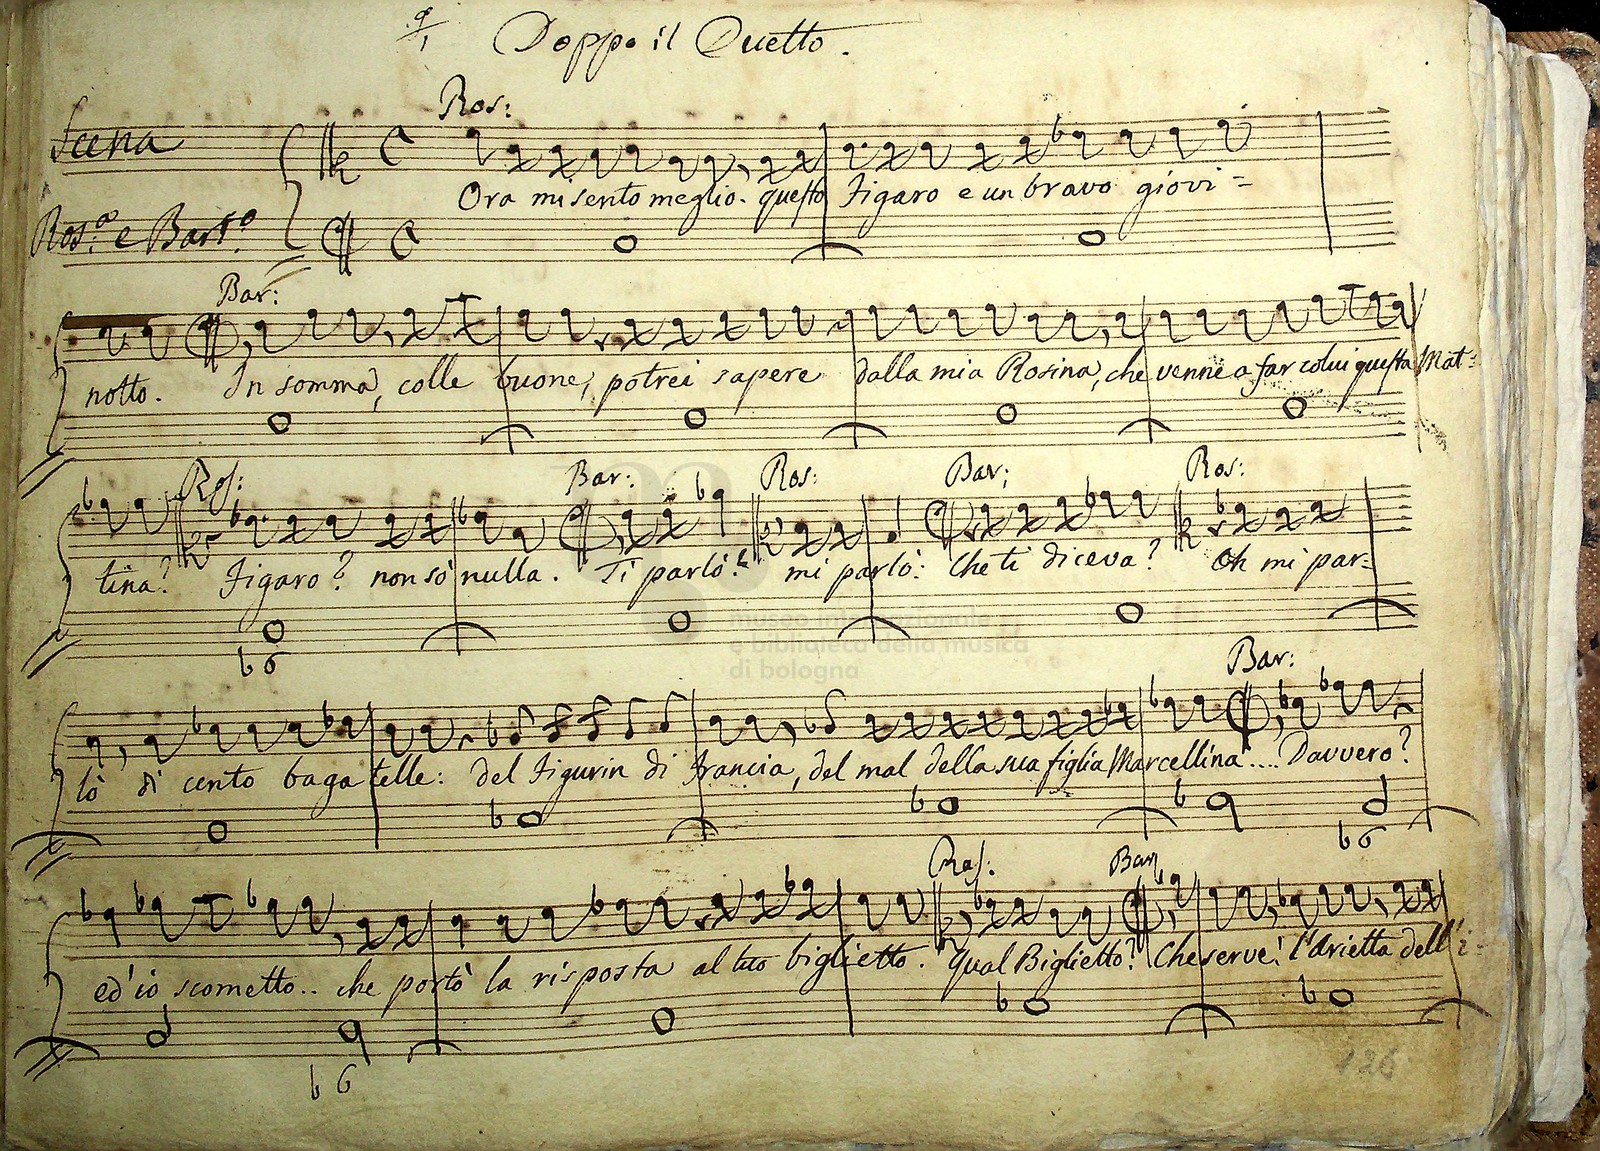 Doppo il Duetto.
Scena
Ros:
Ora mi sento meglio. questo Figaro e un bravo giovi=
Ros.a e Bart.o
Bar:
notto. In somma, colle buone, potrei sapere dalla mia Rosina, che venne a far colui questa Mat=
Ros: Bar: Ros: Bar: Ros:
tina? Figaro? non sò nulla. Ti parlò? mi parlò: Che ti diceva? Oh mi par=
museo internazionale
e biblioteca della musica
di bologna
b6
Bar:
lò di cento bagatelle: del Figurin di Francia, del mal della sua figlia Marcellina.... Davvero?
b6
Ros: Bar
ed'io scometto.. che portò la risposta al tuo biglietto. Qual Biglietto? Che serve! l'Arietta dell'i=
b6
126